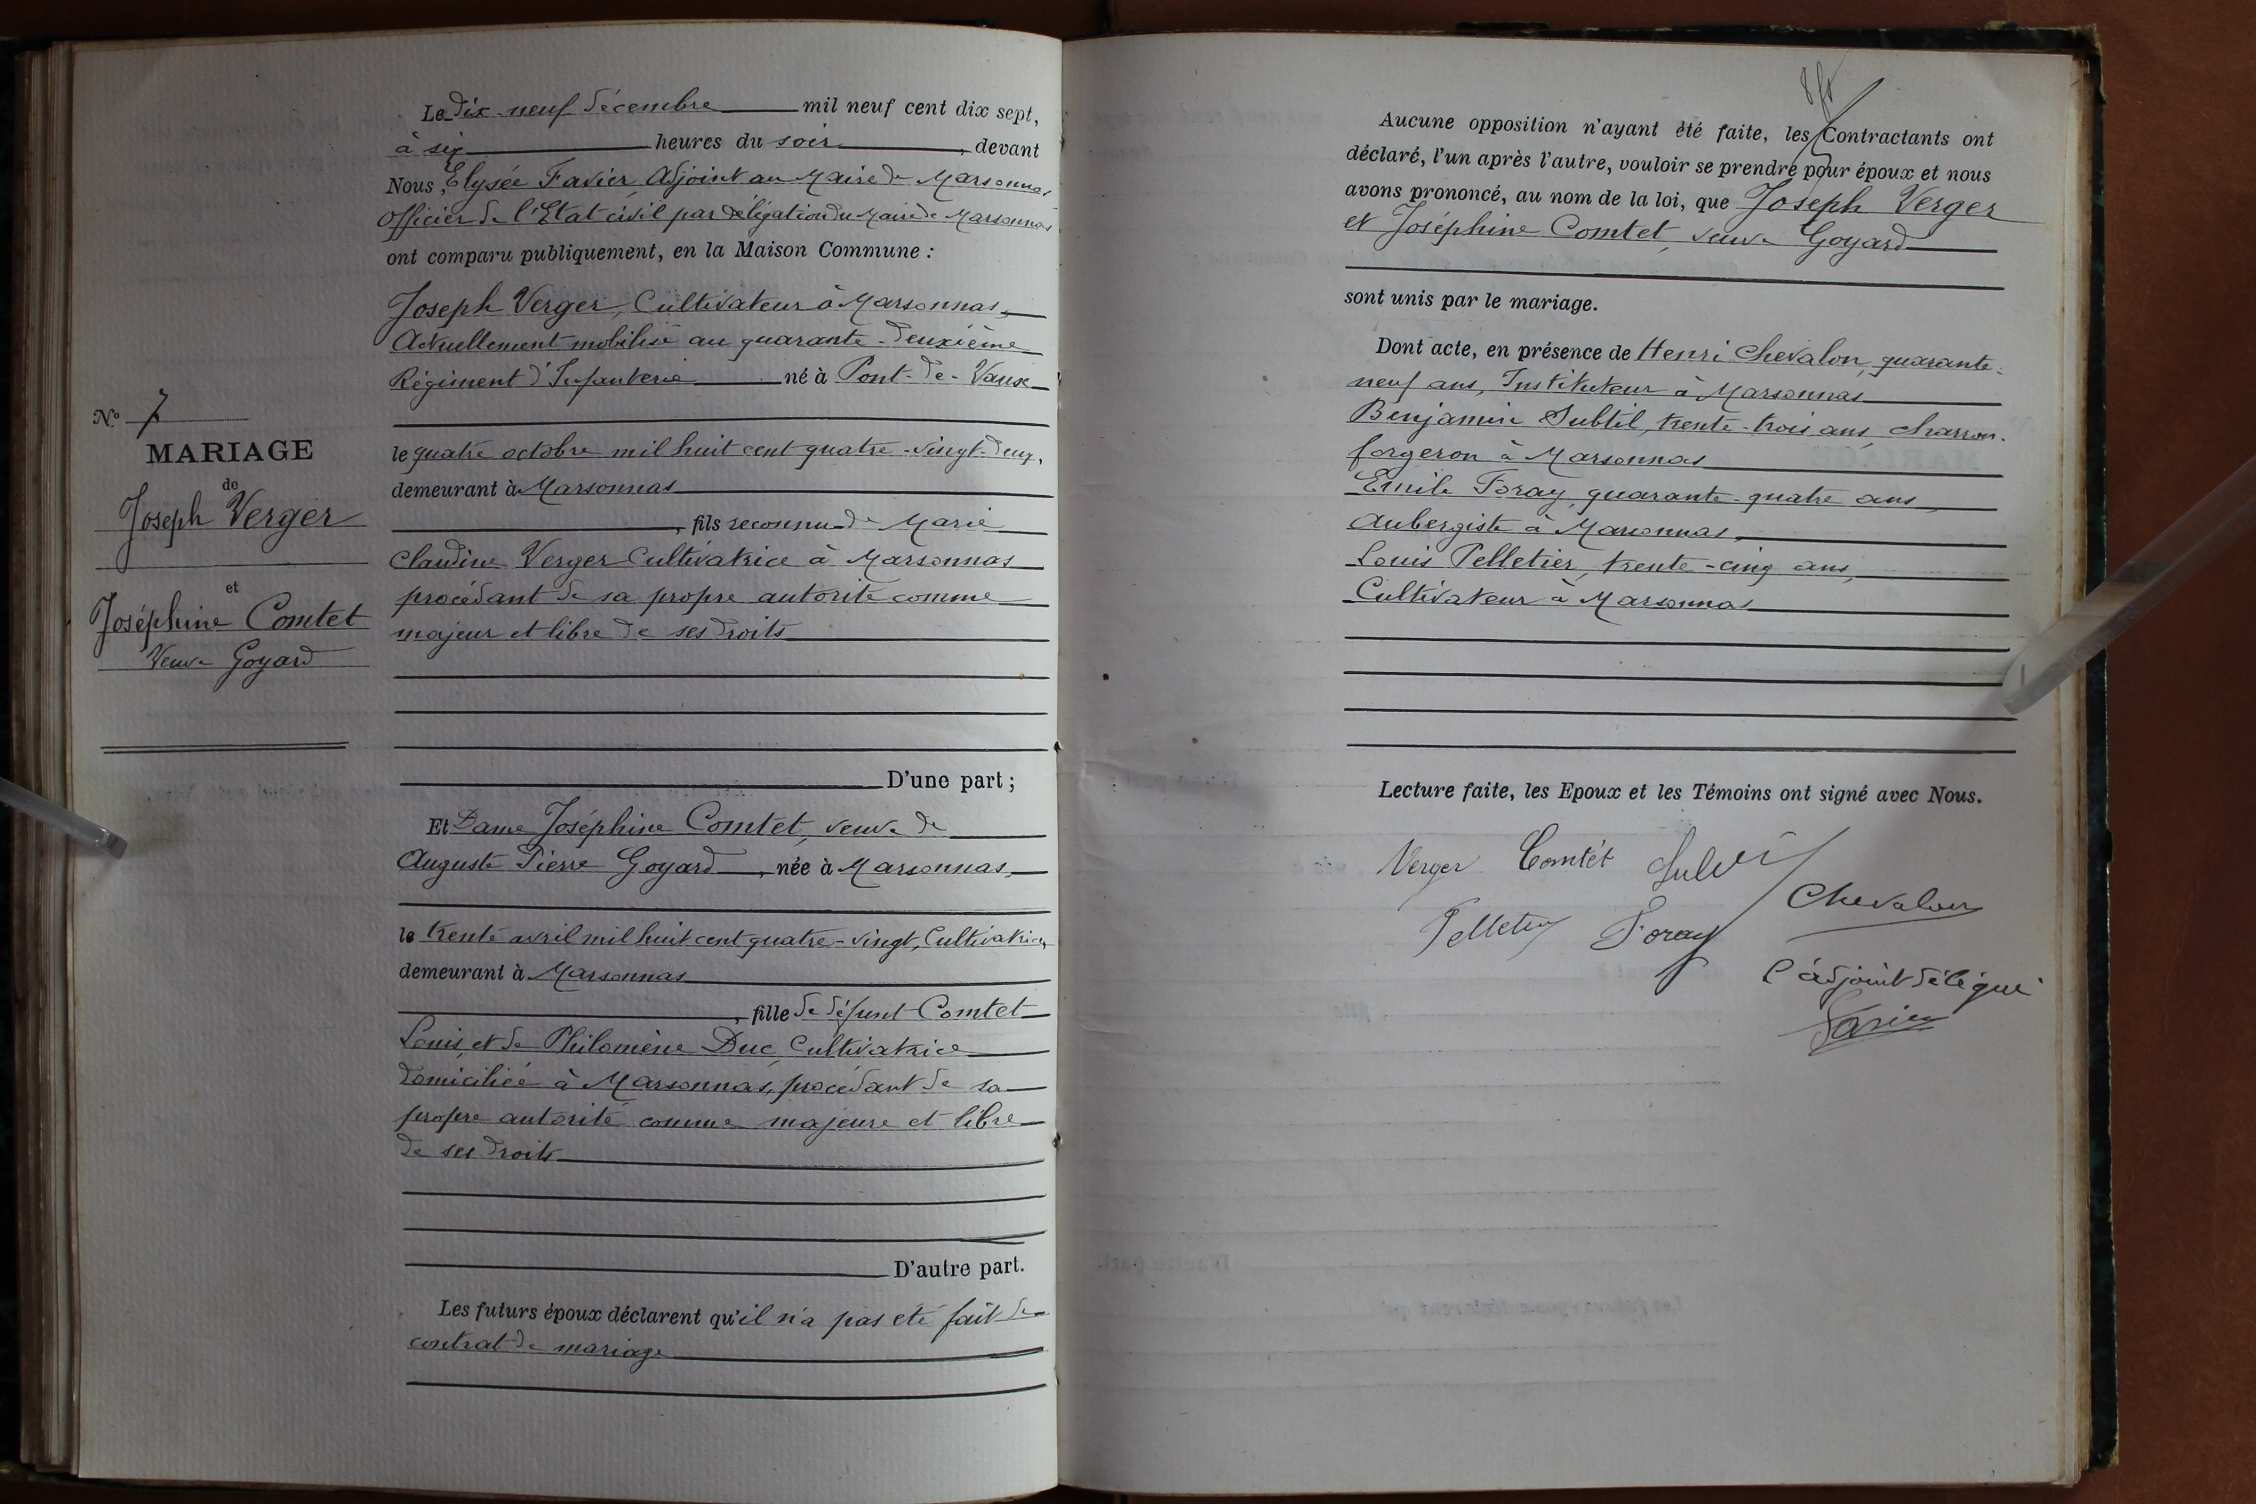 N° 7
MARIAGE
de
Joseph Verger
et
Joséphine Comtet
Veuve Goyard
Le dix-neuf décembre mil neuf cent dix sept,
à six heures du soir, devant
Nous, Elysée Favier, Adjoint au Maire de Marsonnas
officier de l'Etat civil par délégation du Maire de Marsonnas
ont comparu publiquement, en la Maison Commune :
Joseph Verger, Cultivateur à Marsonnas,
Actuellement mobilisé au quarante-deuxième
Régiment d'Infanterie né à Pont-de-Vaux
le quatre octobre mil huit cent quatre-vingt-deux,
demeurant à Marsonnas
, fils reconnu de Marie
Claudine Verger Cultivatrice à Marsonnas
procédant de sa propre autorité comme
majeur et libre de ses droits
D'une part ;
Et Dame Joséphine Comtet, veuve de
Auguste Pierre Goyard, née à Marsonnas,
le trente avril mil huit cent quatre-vingt, Cultivatrice,
demeurant à Marsonnas
, fille de défunt Comtet
Louis, et de Philomène Duc, Cultivatrice
domiciliée à Marsonnas, procédant de sa
propre autorité comme majeure et libre
de ses droits
D'autre part.
Les futurs époux déclarent qu'il n'a pas été fait de
contrat de mariage
Aucune opposition n'ayant été faite, les Contractants ont
déclaré, l'un après l'autre, vouloir se prendre pour époux et nous
avons prononcé, au nom de la loi, que Joseph Verger
et Joséphine Comtet, veuve Goyard
sont unis par le mariage.
Dont acte, en présence de Henri Chevalon, quarante-
neuf ans, Instituteur à Marsonnas
Benjamin Subtil, trente-trois ans, charron-
forgeron à Marsonnas
Emile Foray, quarante-quatre ans,
Aubergiste à Marsonnas,
Louis Pelletier, trente-cinq ans,
Cultivateur à Marsonnas
Lecture faite, les Epoux et les Témoins ont signé avec Nous.
Verger Comtét Subtil
Chevalon
Pelletier Foray
l'adjoint délégué
Favier